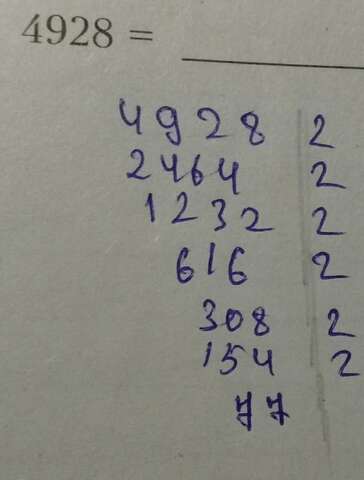 4928 =
4928 2
2464 2
1232 2
616 2
308 2
154 2
77